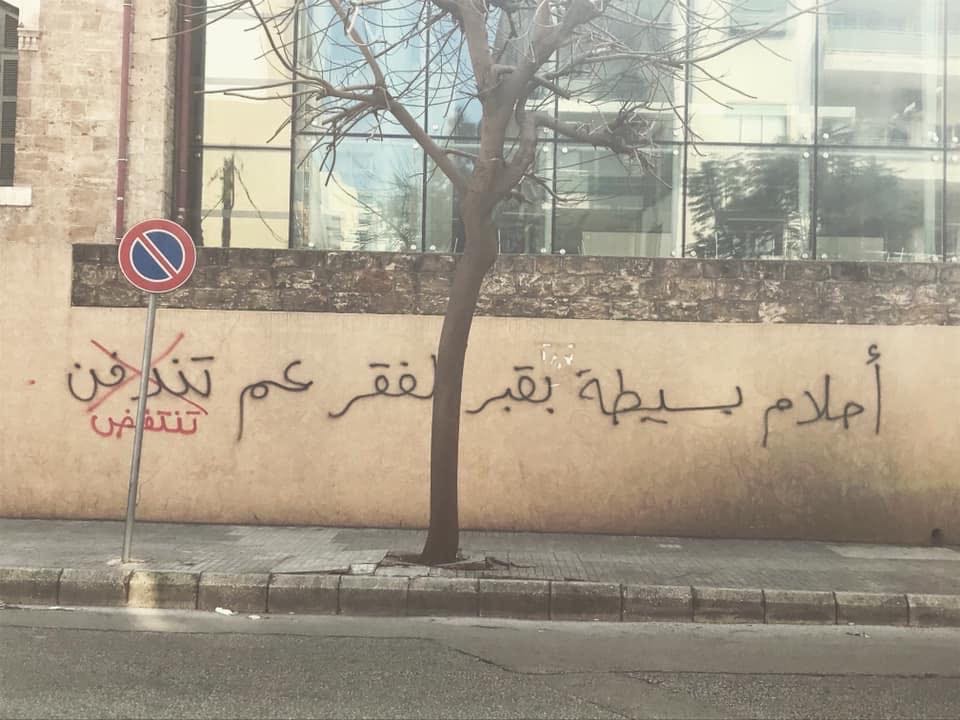 أحلام بسيطة بقبر الفقر عم تندفن
تنتفض